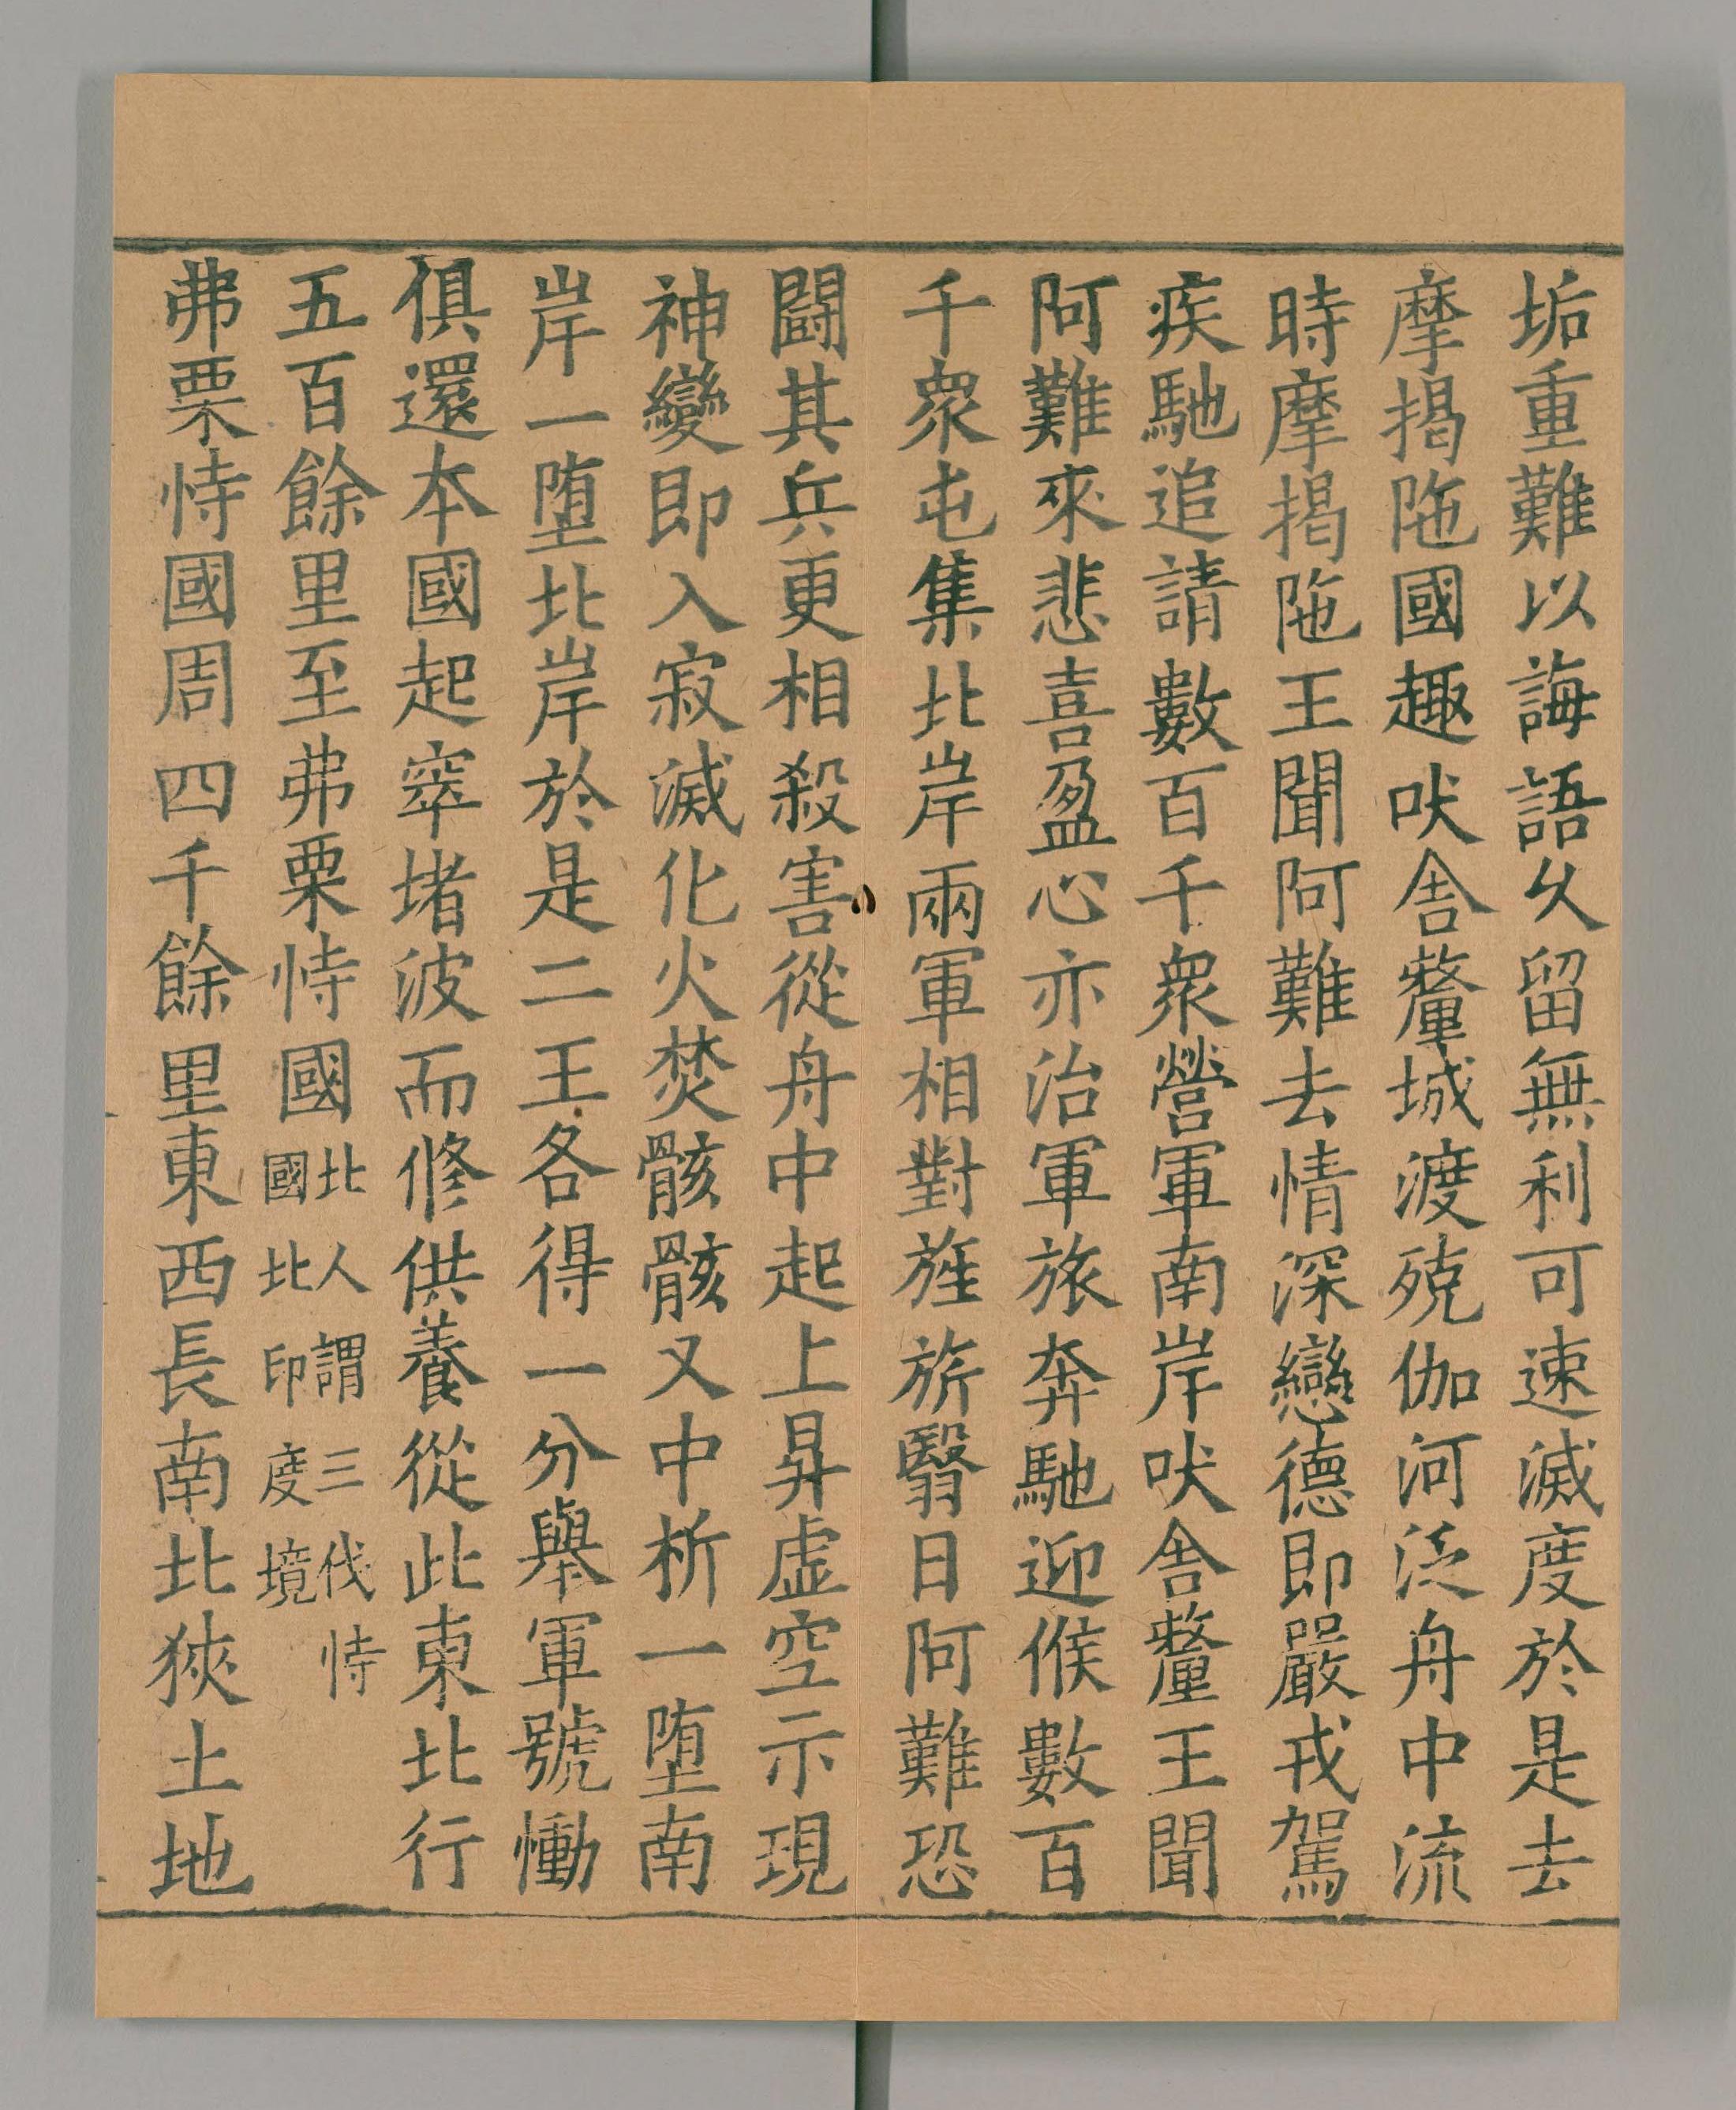 垢重難以誨語久留無利可速滅度於是去
摩揭陁國趣吠舍釐城渡殑伽河泛舟中流
時摩揭陁王聞阿難去情深戀德即嚴戎駕
疾馳追請數百千衆營軍南岸吠舍釐王聞
阿難來悲喜盈心亦治軍旅奔馳迎候數百
千衆屯集北岸兩軍相對旌旂翳日阿難恐
鬪其兵更相殺害從舟中起上昇虛空示現
神變即入寂滅化火焚骸骸又中析一墮南
岸一墮北岸於是二王各得一分舉軍號慟
俱還本國起窣堵波而修供養從此東北行
五百餘里至弗栗恃國北人謂三伐恃國北印度境
弗栗恃國周四千餘里東西長南北狹土地